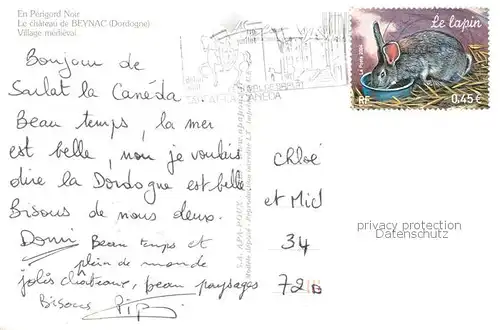 En Périgord Noir
Le château de BEYNAC (Dordogne)
Village médiéval
Le lapin
La Poste 2004
RF 0,45 €
Bonjour de
Sarlat la Canéda
Beau temps, la mer
est belle, non je voulais
dire la Dordogne est belle
Bisous de nous deux.
Domi Beau temps et
plein de monde
jolis châteaux, beau paysages
Bisous
Chloé
et Mid
34
72
privacy protection
Datenschutz